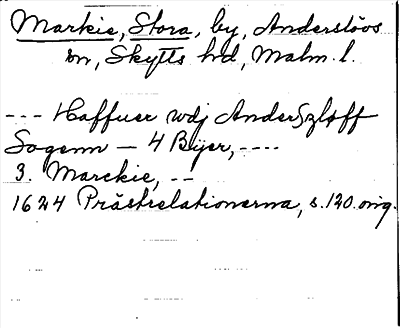 Markie, Stora, by, Anderslövs
sn, Skytts hd, Malm. l.
--- Haffuer wdj Anderszløff
Sogenn — 4 Byer, ----
3. Marckie, --
1624 Prästrelationerna, s. 120. orig.